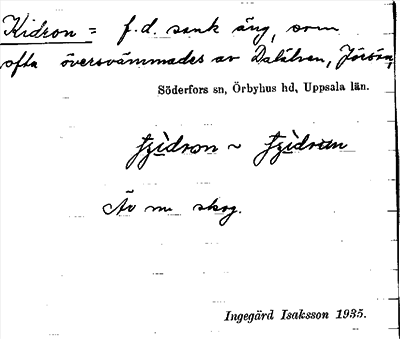 Kidron = f. d. sank äng, som
ofta översvämmades av Dalälven, Jörsön,
Söderfors sn, Örbyhus hd, Uppsala län.
ʈʂìdron ~ ʈʂìdrun
Äv m. skog.
Ingegärd Isaksson 1935.